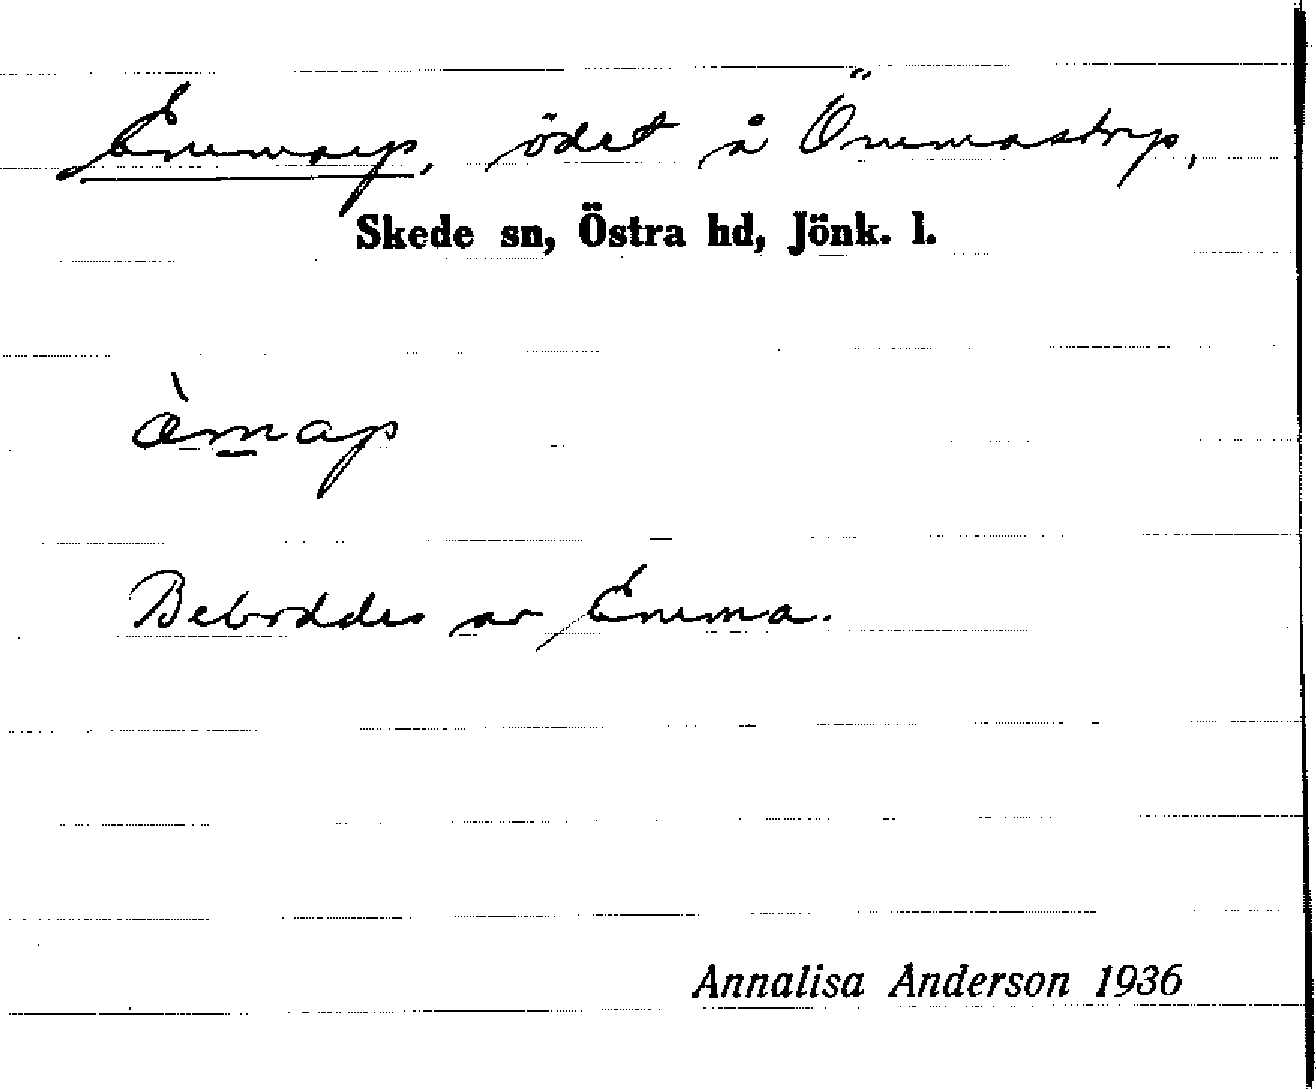 Emmarp, ödet å Ömmastorp,
Skede sn, Östra hd, Jönk. l.
æ̀m̲ap
Beboddes av Emma.
Annalisa Anderson 1936